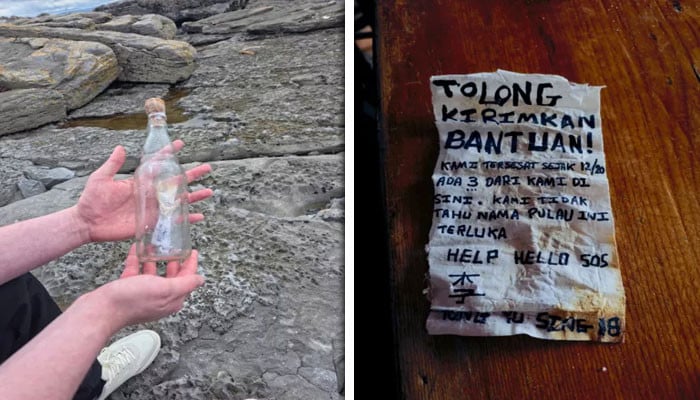 TOLONG
KIRIMKAN
BANTUAN!
KAMI TERSESAT SEJAK 12/20
ADA 3 DARI KAMI DI
SINI. KAMI TIDAK
TAHU NAMA PULAU INI
TERLUKA
HELP HELLO SOS
YU SING